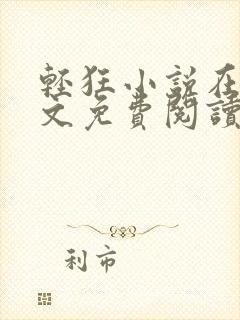 輕狂小說在
文免費閱讀
利市